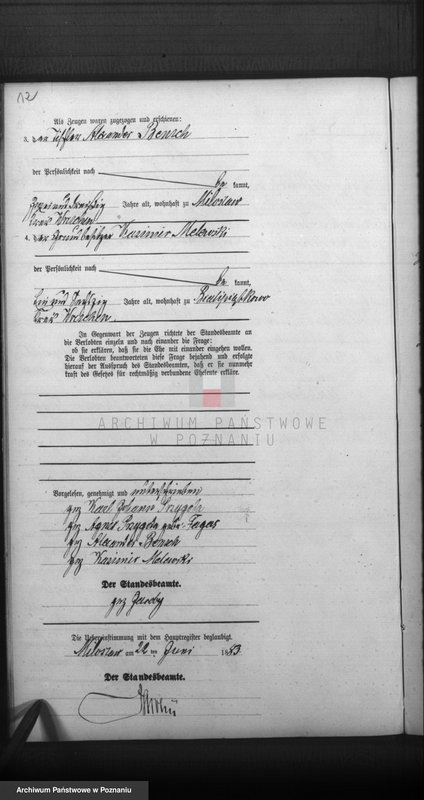 12
Als Zeugen waren zugezogen und erschienen:
3. der Tischler Alexander Bensch
der Persönlichkeit nach
be kannt,
zwei und dreißig Jahre alt, wohnhaft zu Miloslaw
Kreis Wreschen
4. der Grundbesitzer Kazimir Melewski
der Persönlichkeit nach
be kannt,
ein und sechzig Jahre alt, wohnhaft zu
Kreis Wreschen.
In Gegenwart der Zeugen richtete der Standesbeamte an
die Verlobten einzeln und nach einander die Frage:
ob sie erklären, daß sie die Ehe mit einander eingehen wollen.
Die Verlobten beantworteten diese Frage bejahend und erfolgte
hierauf der Ausspruch des Standesbeamten, daß er sie nunmehr
kraft des Gesetzes für rechtmäßig verbundene Eheleute erkläre.
ARCHIWUM PAŃSTWOWE
W POZNANIU
Vorgelesen, genehmigt und unterschrieben
gez Karl Johann Przygoda
gez Agnes Przygoda geb.
gez Alexander Bensch
gez Kazimir Melewski
Der Standesbeamte.
gez
Die Uebereinstimmung mit dem Hauptregister beglaubigt.
Miloslaw am 22 ten Juni 1883.
Der Standesbeamte.
Archiwum Państwowe w Poznaniu